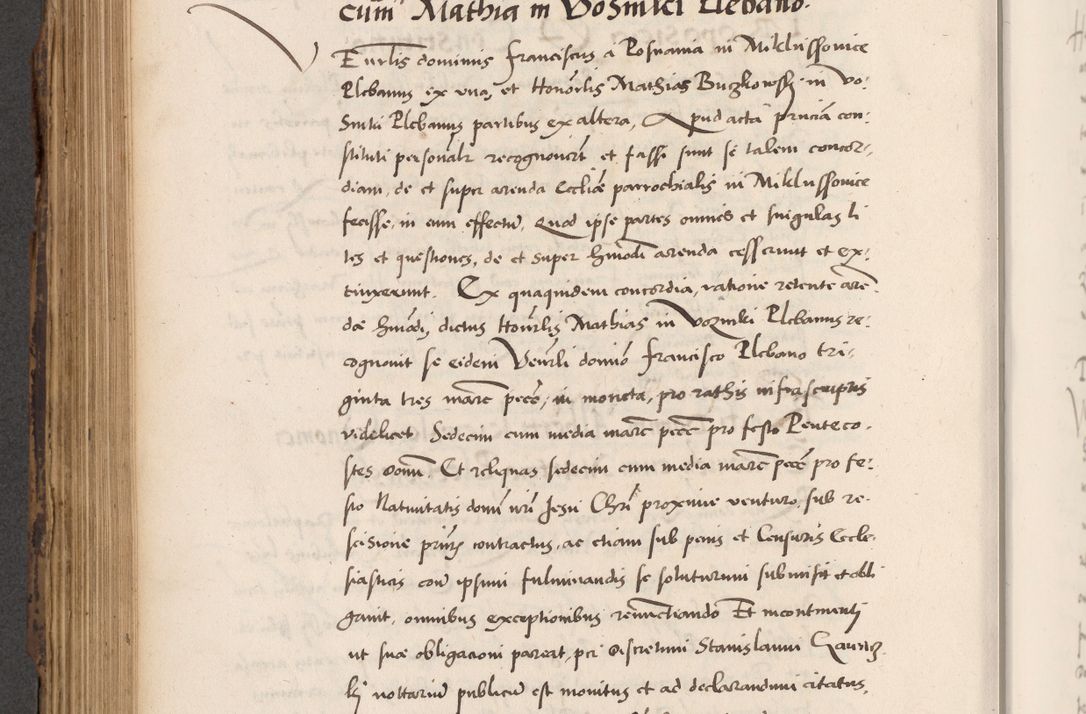 cum Mathia in Vośniki Plebano.
Eurlis dominus Franciscus a Posnania in Miklussovice
Plebanus ex una, et Honorlis Mathias Buczkowskj in Vo-
sniki Plebanus partibus ex altera, Apud acta pnciam con-
stituti personalr recognoverit et fassi sunt se talem concor-
diam, de et super arenda Ecclie parrochialis in Miklussovice
fecisse, in eum effectu, Quod ipse partes omnes et singulas li
tes et questiones, de et super hmodi arenda cesserunt et ex-
tinxerunt. Ex quaquidem concordia, ratione retente aren
dae hmodi, dictus Honorlis Mathias in Vozniki Plebanus re-
cognovit se eidem Venrli domino Francisco Plebano tri-
ginta tres marc pecce, in moneta, pro rathis infrascriptis
videlicet Sedecim cum media marc pecce pro festo Penteco-
stes Et reliquas sedecim cum media marc pecce pro fe-
sto Nativitatis domi nri Jesu Chri proxime venturo, sub re-
scisione contractus, ac etiam sub penis et Censuris Eccle-
siasticis ipsum fulminandis se soluturum submisit et obli
gavit, omnibus exceptionibus renunctiando Et incontinenti
ut suae obligacioni pareat, per discretum Stanislaum
notarium publicum est monitus et ad declarandum citatus,